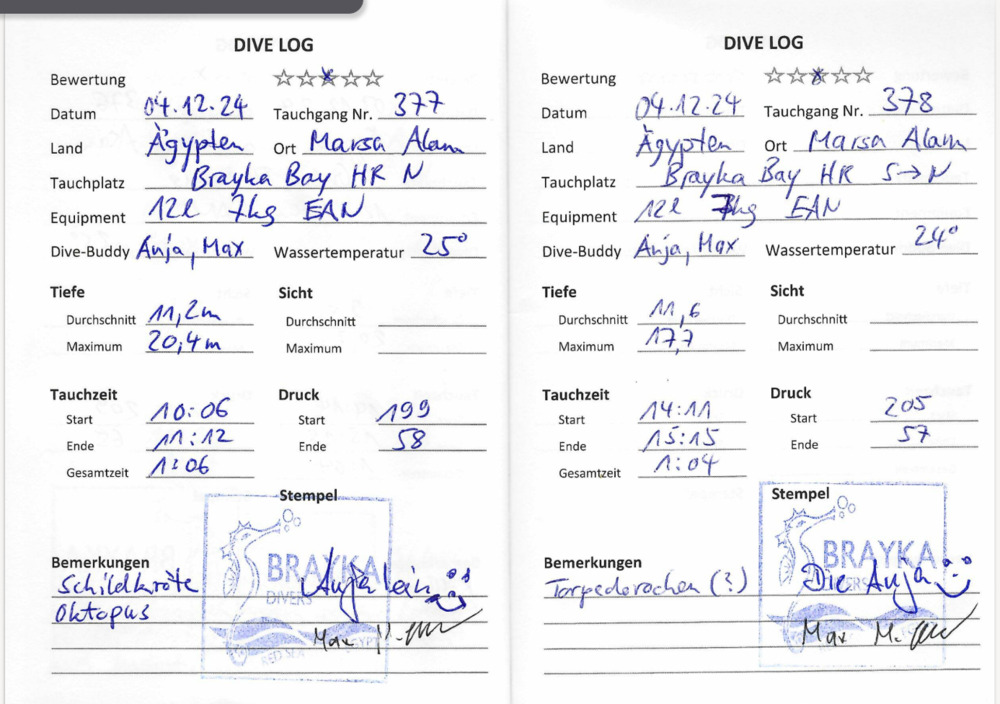 DIVE LOG
Bewertung ☆☆☆☆☆
Datum 04.12.24 Tauchgang Nr. 377
Land Ägypten Ort Marsa Alam
Tauchplatz Brayka Bay HR N
Equipment 12l 7kg EAN
Dive-Buddy Anja, Max Wassertemperatur 25°
Tiefe Sicht
Durchschnitt 11,2m Durchschnitt
Maximum 20,4m Maximum
Tauchzeit Druck
Start 10:06 Start 199
Ende 11:12 Ende 58
Gesamtzeit 1:06
Stempel
BRAYKA
DIVERS
RED SEA EGYPT
Bemerkungen
Schildkröte Anjalein
Oktopus
Max M.
DIVE LOG
Bewertung ☆☆☆☆☆
Datum 04.12.24 Tauchgang Nr. 378
Land Ägypten Ort Marsa Alam
Tauchplatz Brayka Bay HR S→N
Equipment 12l 7kg EAN
Dive-Buddy Anja, Max Wassertemperatur 24°
Tiefe Sicht
Durchschnitt 11,6 Durchschnitt
Maximum 17,7 Maximum
Tauchzeit Druck
Start 14:11 Start 205
Ende 15:15 Ende 57
Gesamtzeit 1:04
Stempel
BRAYKA
DIVERS
Bemerkungen
Torpederochen (?) Die Anja
Max M.